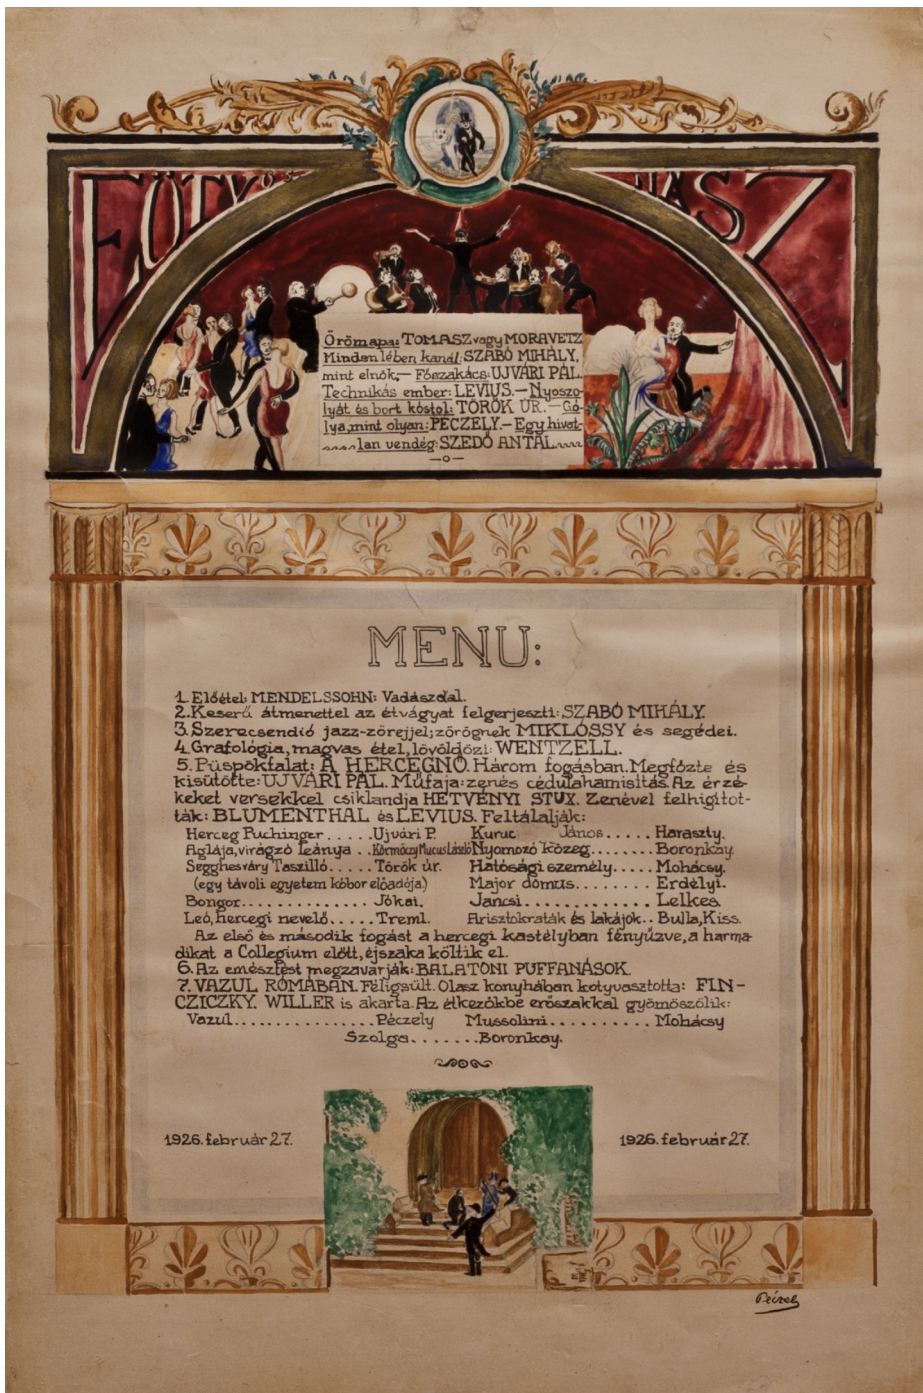 Örömapa: TOMASZ vagy MORAVETZ
Minden lében kanál: SZABÓ MIHÁLY,
mint elnök.— Főszakács: UJVÁRI PÁL.
Technikás ember: LEVIUS.— Nyoszo-
lyát és bort kóstol: TÖRÖK ÚR.— Gó-
lya, mint olyan: PÉCZELY.— Egy hivat-
lan vendég: SZEDŐ ANTAL
MENU:
1. Előétel: MENDELSSOHN: Vadászdal.
2. Keserű átmenettel az étvágyat felgerjeszti: SZABÓ MIHÁLY.
3. Szerecsendió jazz-zörejjel; zörögnek MIKLÓSSY és segédei.
4. Grafológia, magvas étel, lövöldözi: WENTZELL.
5. Püspökfalat: A HERCEGNŐ. Három fogásban. Megfőzte és
kisütötte: UJVÁRI PÁL. Műfaja: zenés cédulahamisítás. Az érzé-
keket versekkel csiklandja HETVÉNYI STUX. Zenével felhigitot-
ták: BLUMENTHAL és LEVIUS. Feltálalják:
Herceg Puchinger . . . . . Ujvári P. Kuruc János . . . . . Haraszty.
Aglája, virágzó leánya . . Körmöczy Mucus László Nyomozó közeg . . . . . . . . Boronkay.
Segghesváry Taszilló . . . . . Török úr. Hatósági személy . . . . . Mohácsy.
(egy távoli egyetem kóbor előadója) Major domus . . . . . . . . Erdélyi.
Bongor . . . . . . . . . . . . . . Jókai. Jancsi . . . . . . . . . . . . . . Lelkes.
Leó, hercegi nevelő . . . . . Treml. Arisztokraták és lakájok . . Bulla, Kiss.
Az első és második fogást a hercegi kastélyban fényűzve, a harma-
dikat a Collegium előtt, éjszaka költik el.
6. Az emésztést megzavarják: BALATONI PUFFANÁSOK.
7. VAZUL RÓMÁBAN. Féligsült. Olasz konyhában kotyvasztotta: FIN-
CZICZKY. WILLER is akarta. Az étkezőkbe erőszakkal gyömöszölik:
Vazul . . . . . . . . . . . . . . Péczely Mussolini . . . . . . . . . . Mohácsy
Szolga . . . . . . . Boronkay.
1926. február 27. 1926. február 27.